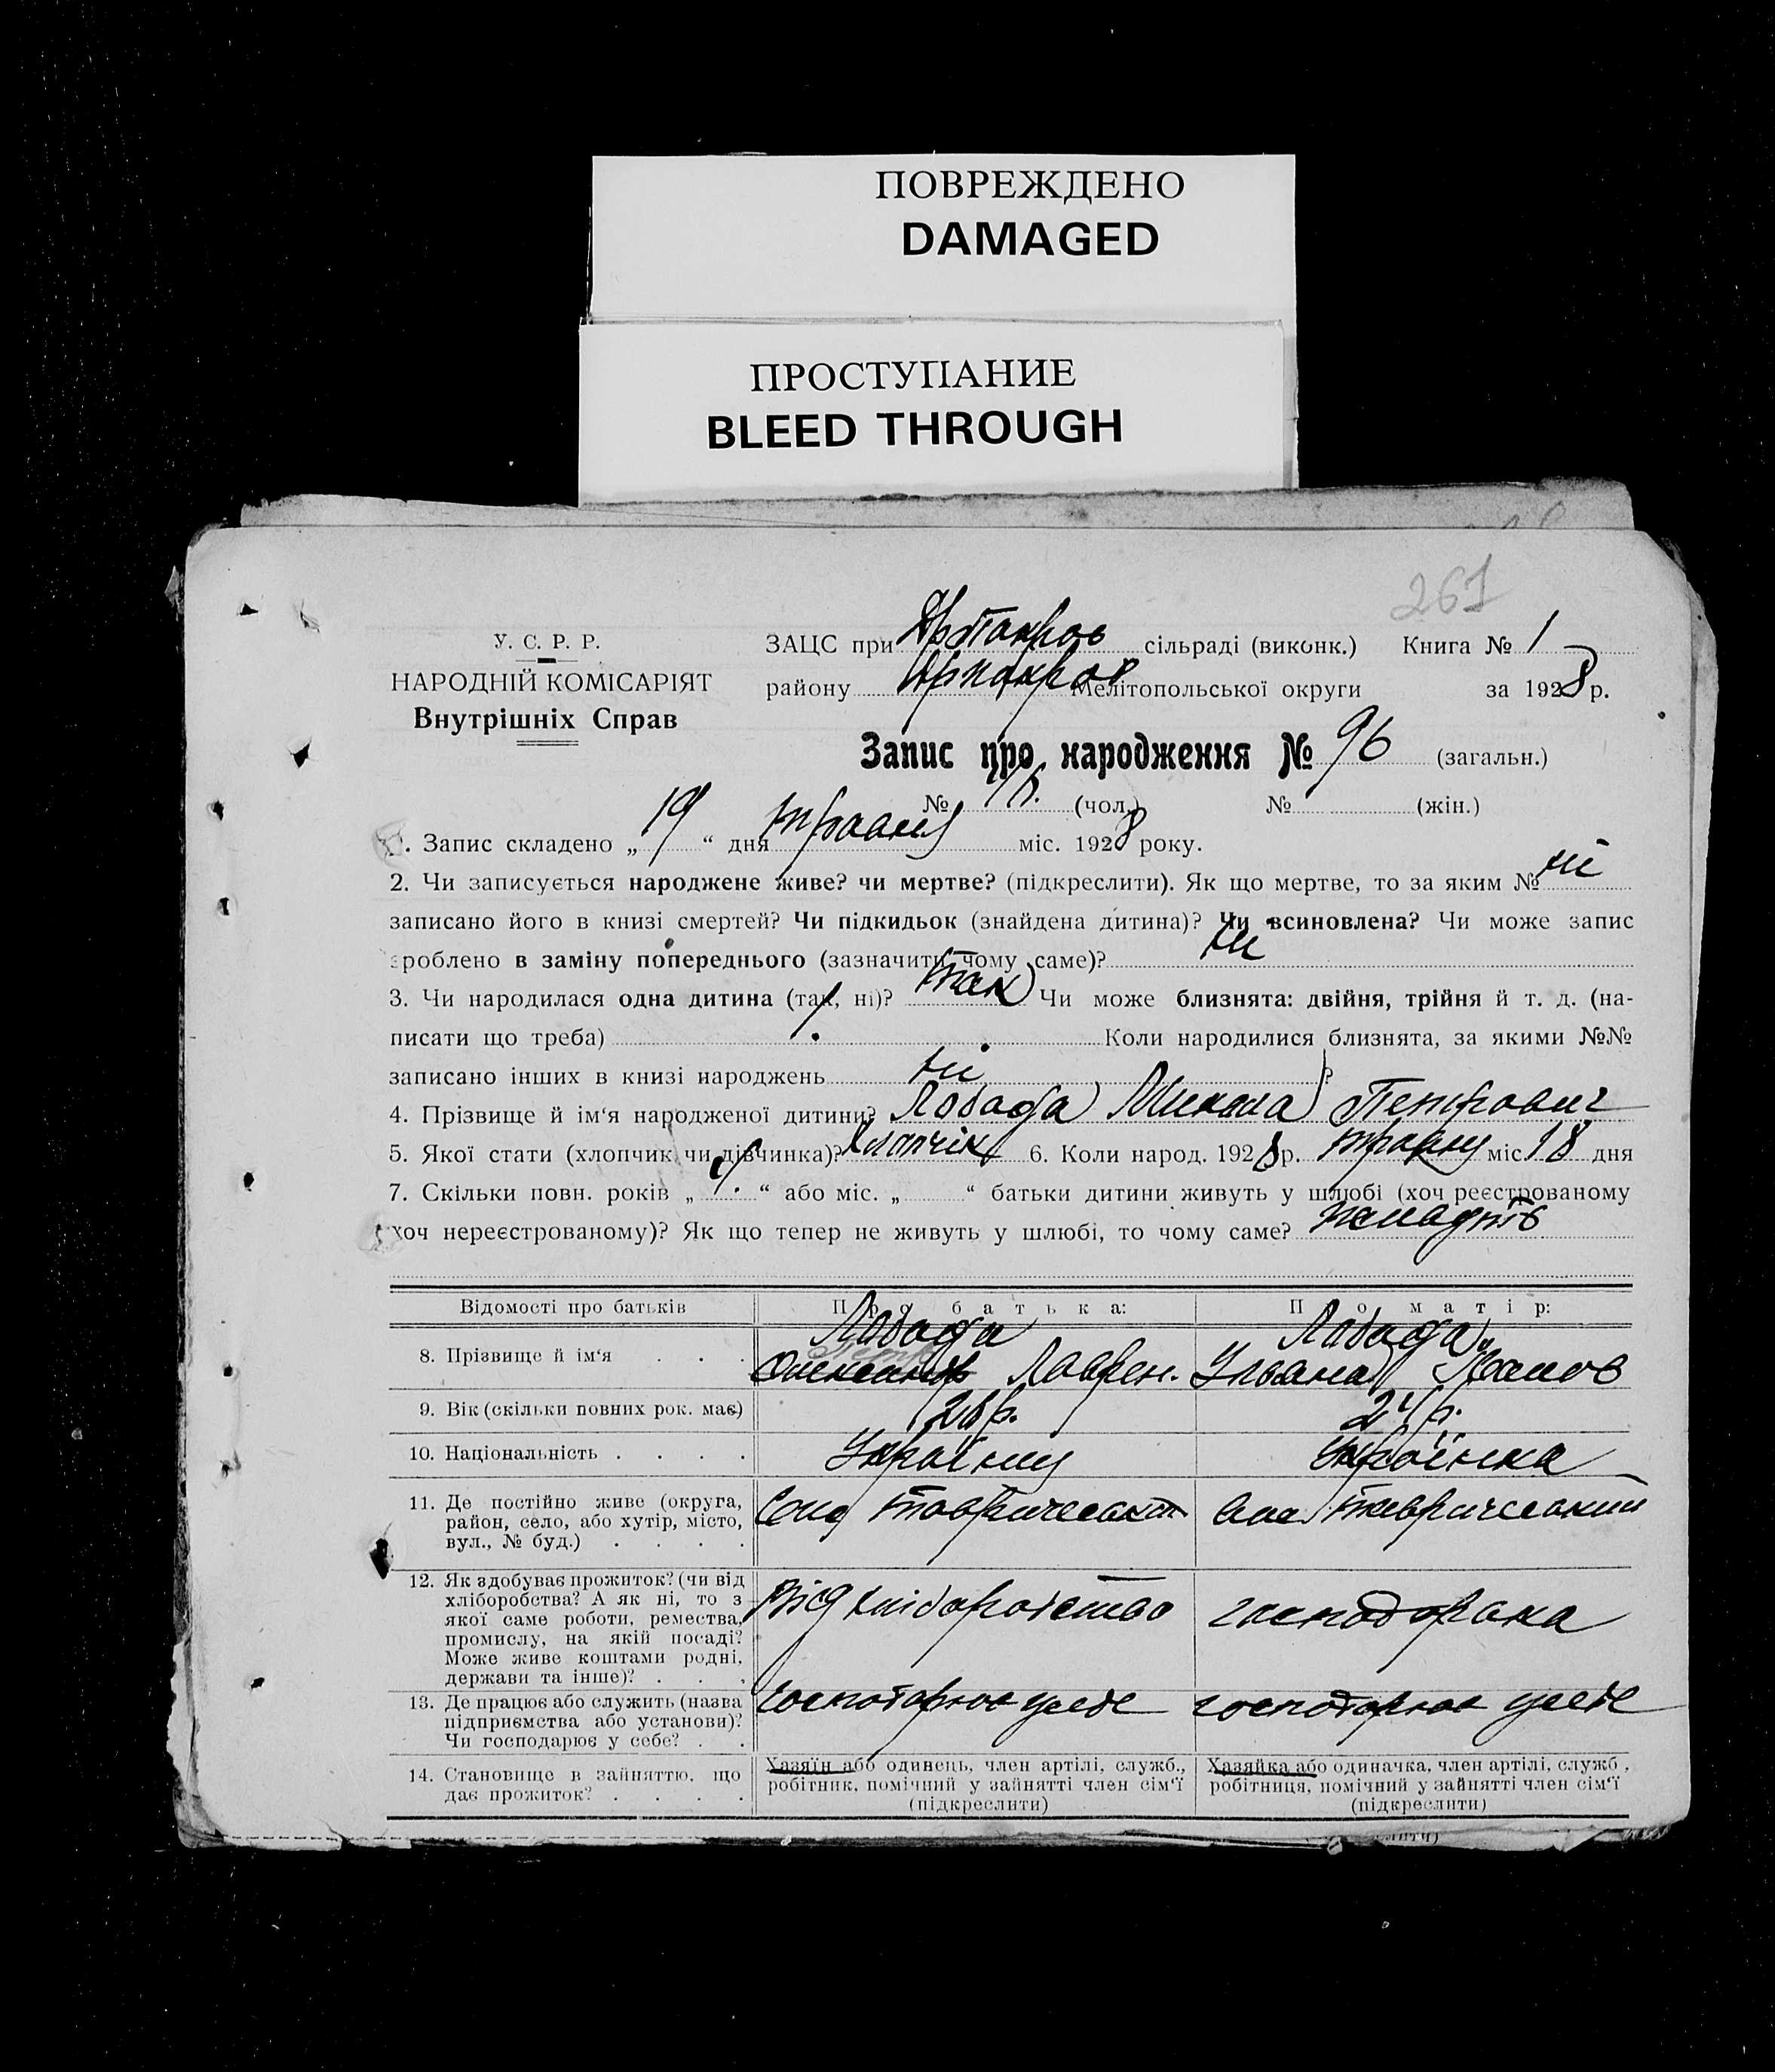 ПОВРЕЖДЕНО
DAMAGED
ПРОСТУПАНИЕ
BLEED THROUGH
261
У. С. Р. Р.
НАРОДНІЙ КОМІСАРІЯТ
Внутрішніх Справ
ЗАЦС при сільраді (виконк.) Книга № 1
району Мелітопольської округи за 1928 р.
Запис про народження № 96 (загальн.)
№ (чол.) № (жін.)
1. Запис складено „ 19 “ дня травня міс. 1928 року.
2. Чи записується народжене живе? чи мертве? (підкреслити). Як що мертве, то за яким № ні
записано його в книзі смертей? Чи підкидьок (знайдена дитина)? Чи всиновлена? Чи може запис
зроблено в заміну попереднього (зазначити чому саме)? ні
3. Чи народилася одна дитина (так, ні)? так Чи може близнята: двійня, трійня й т. д. (на-
писати що треба) Коли народилися близнята, за якими №№
записано інших в книзі народжень ні ?
4. Прізвище й ім‘я народженої дитини? Лобода Микола Петрович
5. Якої стати (хлопчик чи дівчинка)? Хлопчік 6. Коли народ. 1928 р. травня міс. 18 дня
7. Скільки повн. років „ “ або міс. „ “ батьки дитини живуть у шлюбі (хоч реєстрованому
хоч нереєстрованому)? Як що тепер не живуть у шлюбі, то чому саме?
Відомості про батьків Про батька: Про матір:
8. Прізвище й ім‘я . . . Лобода Лаврен. Лобода Уляна
9. Вік (скільки повних рок. має) 26 р. 24 р.
10. Національність . . . . Українец Українка
11. Де постійно живе (округа,
район, село, або хутір, місто,
вул., № буд.) . . . .
12. Як здобуває прожиток? (чи від
хліборобства? А як ні, то з
якої саме роботи, ремества,
промислу, на якій посаді?
Може живе коштами родні,
держави та інше)? . . .
Від хліборобство господарка
13. Де працює або служить (назва
підприємства або установи)?
Чи господарює у себе? . .
господарює у себе господарює у себе
14. Становище в зайняттю, що
дає прожиток? . . . .
Хазяїн або одинець, член артілі, служб.,
робітник, помічний у зайнятті член сім‘ї
(підкреслити)
Хазяйка або одиначка, член артілі, служб.,
робітниця, помічний у зайнятті член сім‘ї
(підкреслити)